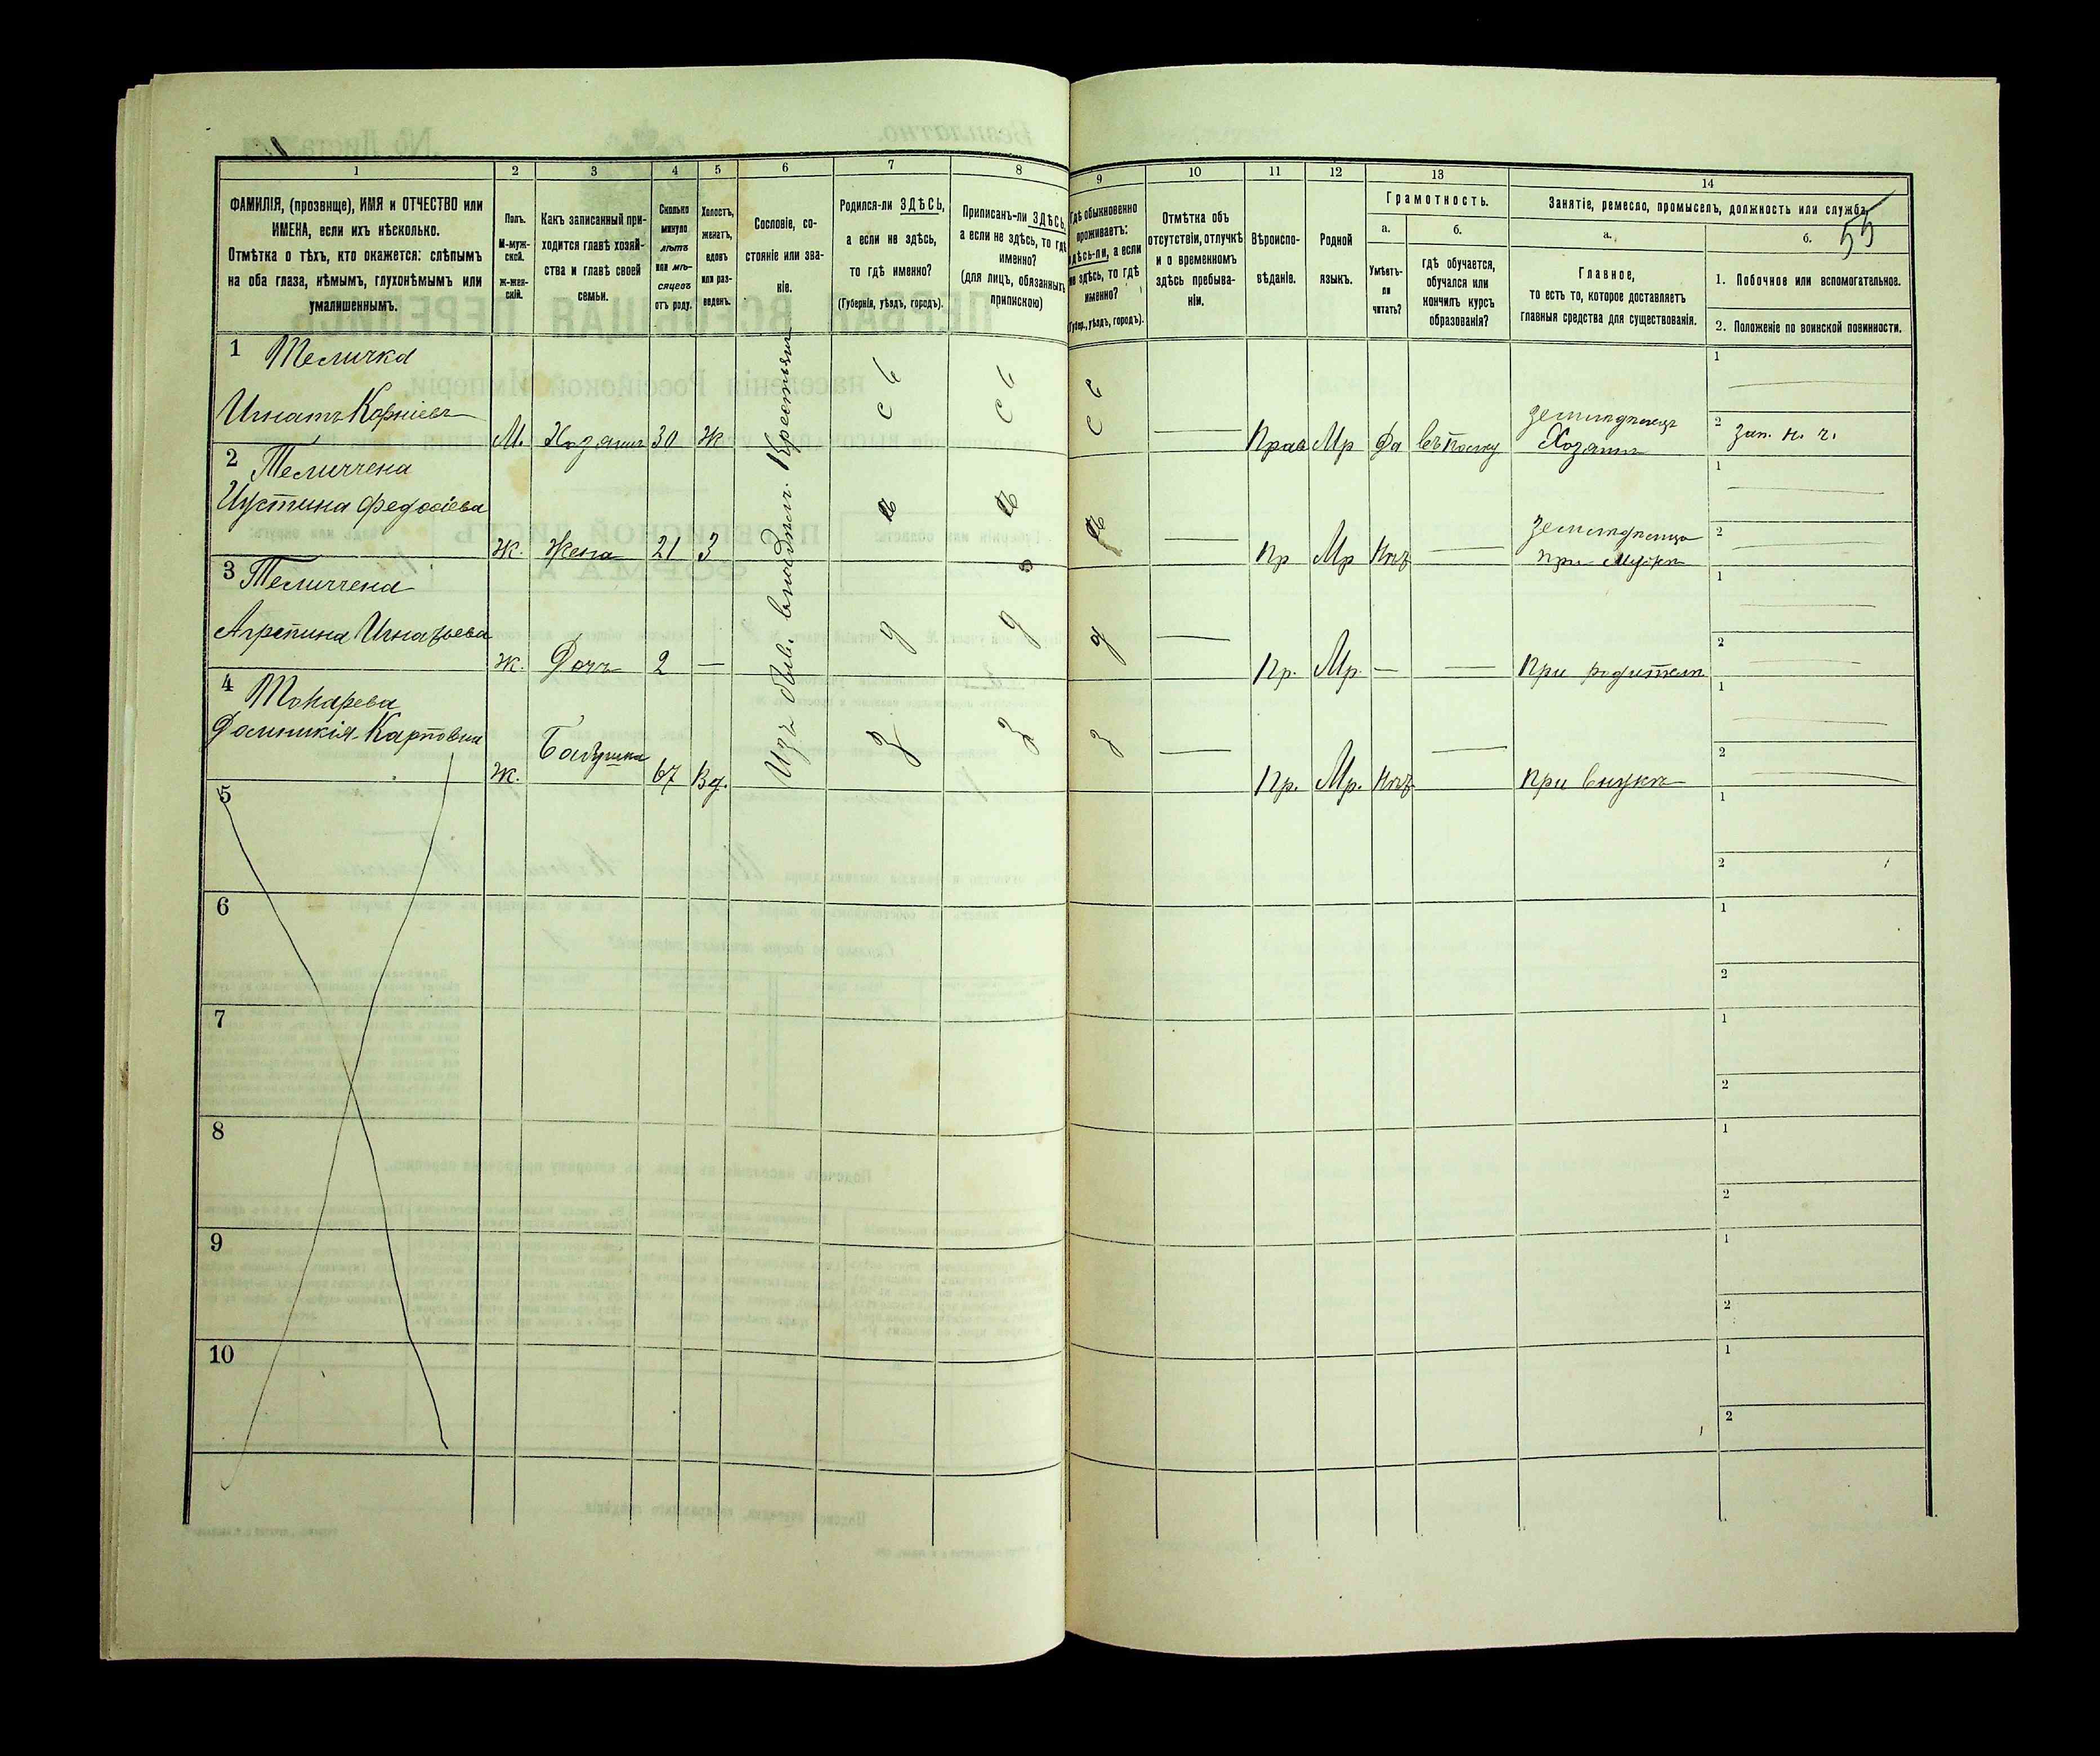 1 2 3 4 5 6 7 8 9 10 11 12 13 14
55
ФАМИЛІЯ, (прозвище), ИМЯ и ОТЧЕСТВО или
ИМЕНА, если ихъ нѣсколько.
Отмѣтка о тѣхъ, кто окажется: слѣпымъ
на оба глаза, нѣмымъ, глухонѣмымъ или
умалишеннымъ.
Полъ.
М-муж-
ской.
Ж-жен-
скій.
Какъ записанный при-
ходится главѣ хозяй-
ства и главѣ своей
семьи.
Сколько
минуло
лѣтъ
или мѣ-
сяцевъ
отъ роду.
Холостъ,
женатъ,
вдовъ
или раз-
веденъ.
Сословіе, со-
стояніе или зва-
ніе.
Родился-ли ЗДѢСЬ,
а если не здѣсь,
то гдѣ именно?
(Губернія, уѣздъ, городъ).
Приписанъ-ли ЗДѢСЬ,
а если не здѣсь, то гдѣ
именно?
(для лицъ, обязанныхъ
припискою)
Гдѣ обыкновенно
проживаетъ:
здѣсь-ли, а если
не здѣсь, то гдѣ
именно?
(Губер., уѣздъ, городъ).
Отмѣтка объ
отсутствіи, отлучкѣ
и о временномъ
здѣсь пребыва-
ніи.
Вѣроиспо-
вѣданіе.
Родной
языкъ.
Грамотность.
а.
Умѣетъ-
ли
читать?
б.
гдѣ обучается,
обучался или
кончилъ курсъ
образованія?
Занятіе, ремесло, промыселъ, должность или служба.
а.
Главное,
то есть то, которое доставляетъ
главныя средства для существованія.
б.
1. Побочное или вспомогательное.
2. Положеніе по воинской повинности.
1 Теличка
Игнатъ Корніевъ
М. Хозяинъ 30 Ж
Прав Мр Да
земледѣлецъ
Хозяинъ
1
2 зап. н. ч.
2 Теличчена
Иустина Федосіева
Ж. Жена 21 З
Пр Мр Нѣт
при мужѣ
1
2
3 Теличчена
Агрепина Игнатьева
Ж. Дочь 2 —
Пр. Мр. —
При родителѣ
1
2
4 Токарева
Доминикія Карповна
Ж. Бабушка 67 Вд.
Пр. Мр. Нѣт
При внукѣ
1
2
Изъ быв. владѣл. Крестьянъ
5
1
2
6
1
2
7
1
2
8
1
2
9
1
2
10
1
2